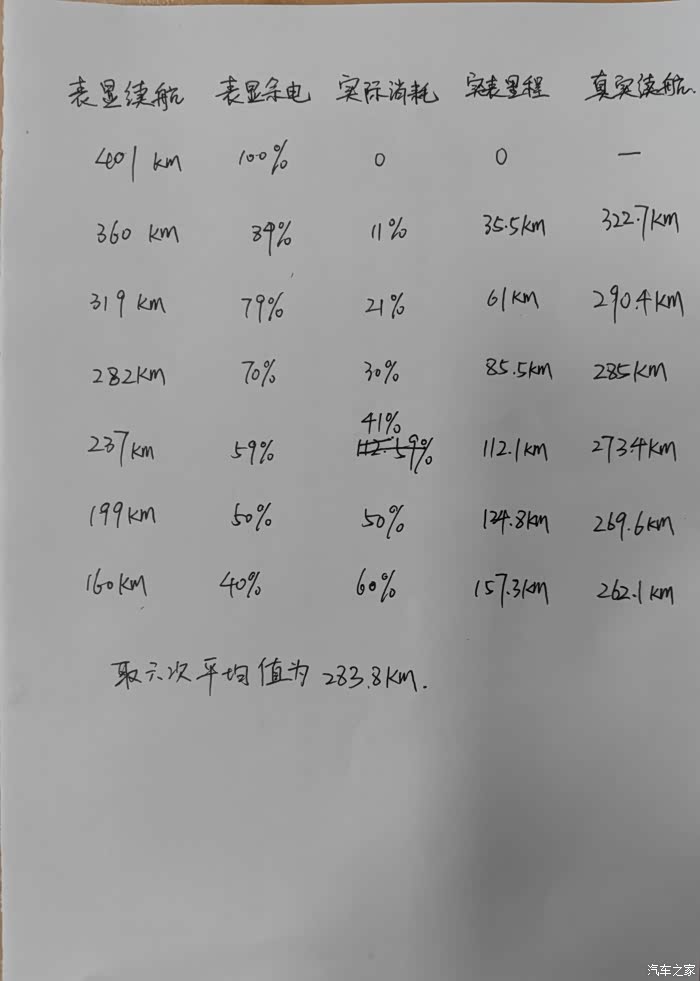 表显续航 表显余电 实际消耗 实表里程 真实续航.
401 km 100% 0 0 —
360 km 89% 11% 35.5km 322.7km
319 km 79% 21% 61km 290.4km
282km 70% 30% 85.5km 285km
237km 59% 41% 112.1km 273.4km
199km 50% 50% 134.8km 269.6km
160km 40% 60% 157.3km 262.1km
取六次平均值为 283.8km.
汽车之家